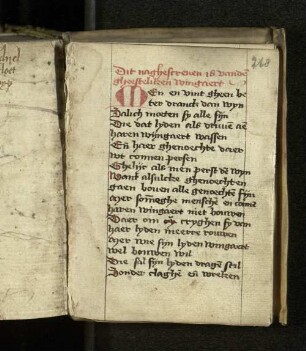 268
Dit naghescreuen is vande
gheesteliken wijngaert
MEn en vint gheen be
ter dranck dan wijn
Salich moeten sy alle sijn
Die dat lyden als druuē aē
haren wijngaert wassen
En̄ haer ghenoechte daer
wt connen persen
Ghelijc als men perst dē wyn
Want alsulcke ghenoechten
gaen bouen alle ghenoechtē sijn
Mer menschē
haren wijngaert niet bouwen
Daer om cryghen sy van
haer lyden meerre rouwen
Mer wie sijn lyden wijngaert
wel bouwen wil
Die sal sijn lyden dragē stil
Sonder claghē en̄ wreken